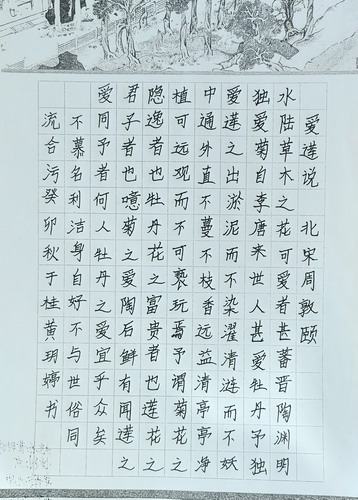 爱莲说 北宋周敦颐
水陆草木之花可爱者甚蕃晋陶渊明
独爱菊自李唐来世人甚爱牡丹予独
爱莲之出淤泥而不染濯清涟而不妖
中通外直不蔓不枝香远益清亭亭净
植可远观而不可亵玩焉予谓菊花之
隐逸者也牡丹花之富贵者也莲花之
君子者也噫菊之爱陶后鲜有闻莲之
爱同予者何人牡丹之爱宜乎众矣
不慕名利洁身自好不与世俗同
流合污癸卯秋于桂黄玥婷书